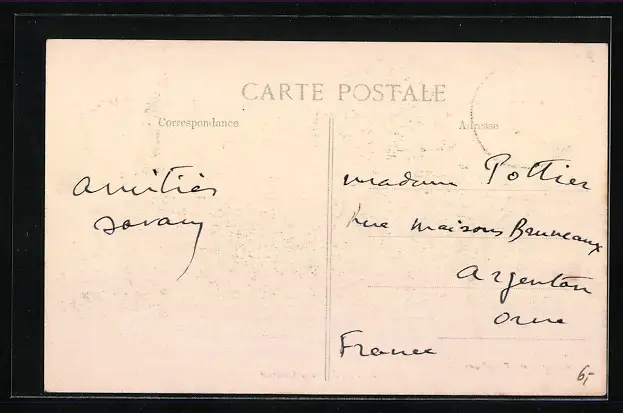 CARTE POSTALE
Correspondance
Adresse
amitiés
madame Pottier
Rue maisons Bruneaux
Argentan
Orne
France
6,-